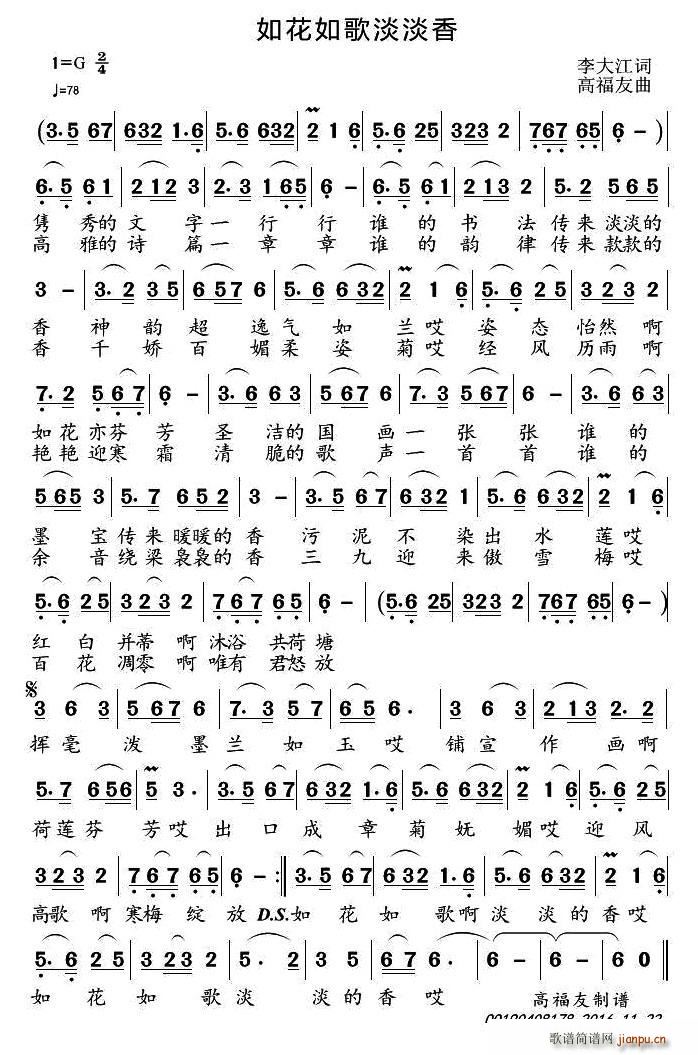 如花如歌淡淡香
1=G 2/4
李大江词
♩=78
高福友曲
(3.5 67 | 632 1.6 | 5.6 632 | 2 1 6 | 5.6 25 | 323 2 | 767 65 | 6 - ) |
6.5 61 | 212 3 | 2.3 165 | 6 - | 6.5 61 | 2 13 2 | 5.2 565 |
隽秀的文字一行行谁的书法传来淡淡的
高雅的诗篇一章章谁的韵律传来款款的
3 - | 3.2 35 | 6 57 6 | 5.6 632 | 2 1 6 | 5.6 25 | 3 23 2 |
香神韵超逸气如兰哎姿态怡然啊
香千娇百媚柔姿菊哎经风历雨啊
7.2 567 | 6 - | 3.6 63 | 567 6 | 7.3 567 | 6 - | 3.6 63 |
如花亦芬芳圣洁的国画一张张谁的
艳艳迎寒霜清脆的歌声一首首谁的
565 3 | 5.7 652 | 3 - | 3.5 67 | 632 1 | 5.6 632 | 2 1 6 |
墨宝传来暖暖的香污泥不染出水莲哎
余音绕梁袅袅的香三九迎来傲雪梅哎
5.6 25 | 323 2 | 767 65 | 6 - | (5.6 25 | 323 2 | 767 65 | 6 - ) |
红白并蒂啊沐浴共荷塘
百花凋零啊唯有君怒放
3 6 3 | 567 6 | 7.3 57 | 6 5 6. | 3 6 3 | 2 13 | 2.2 |
挥毫泼墨兰如玉哎铺宣作画啊
5.7 656 | 5 3. | 3.5 67 | 632 1.6 | 5.6 632 | 2 1 6 | 5.6 25 |
荷莲芬芳哎出口成章菊妩媚哎迎风
323 2 | 767 65 | 6 - :‖ 3.5 67 | 632 1.6 | 5.6 632 | 2 1 6 |
高歌啊寒梅绽放D.S.如花如歌啊淡淡的香哎
5.6 25 | 323 2 | 5. 2 | 3 5 | 667 65 | 6 - | 6 - | 6 0 ‖
如花如歌淡淡的香哎
高福友制谱
歌谱简谱网
jianpu.cn